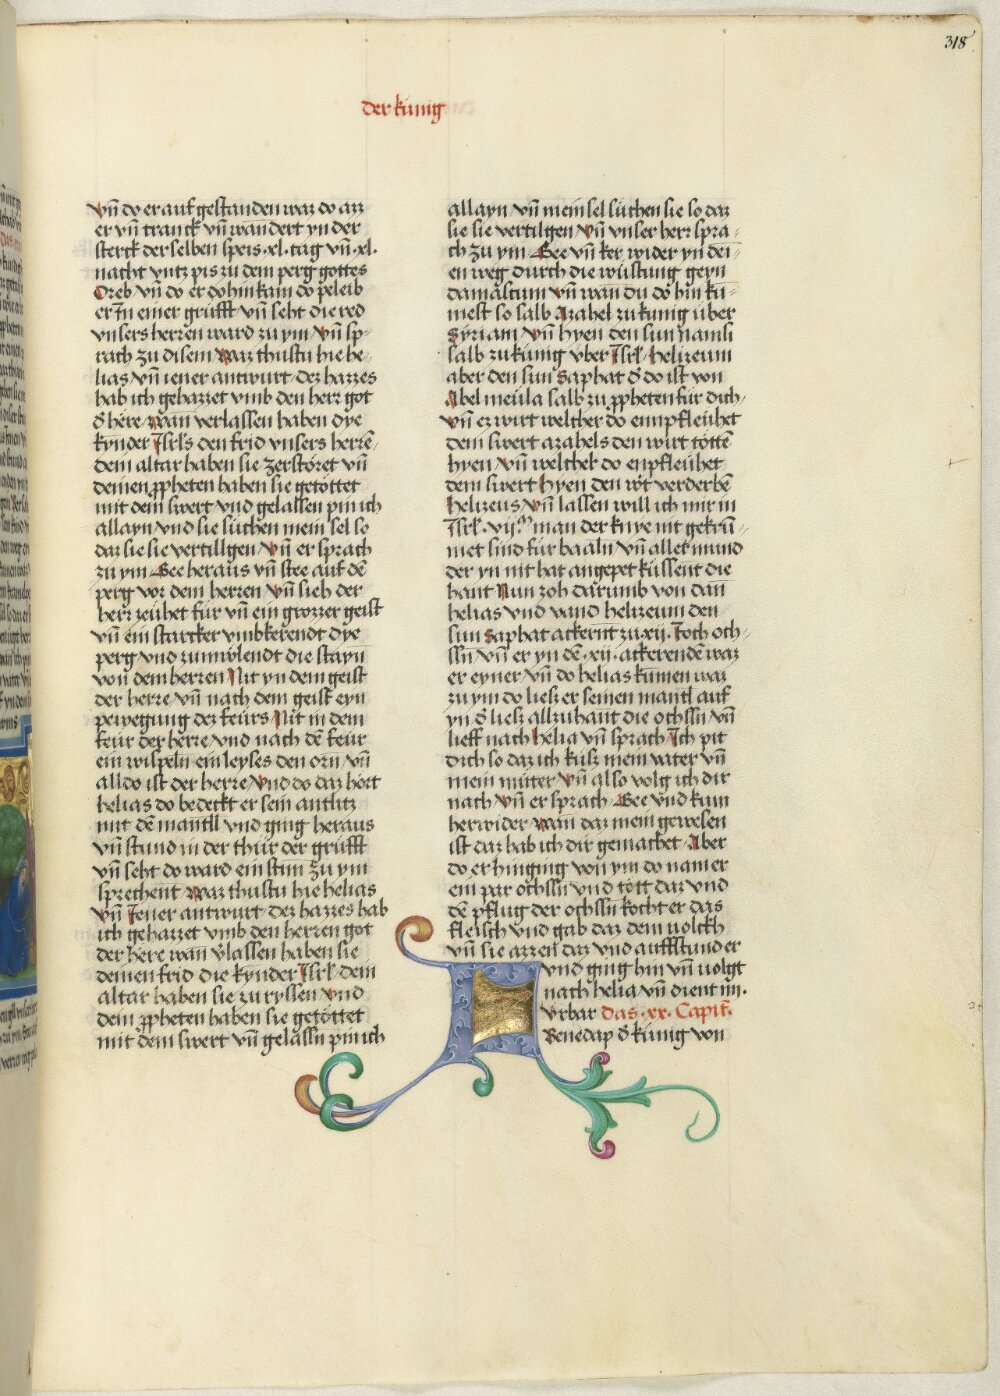 318
der künig
vn̄ do er auf gestanden waz do azz
er vn̄ tranck vn̄ wandert yn der
sterck der selben speis ·xl· tag vn̄ ·xl·
nacht vntz pis zu dem perg gottes
Oreb vn̄ do er dohin kam do peleib
er In einer grufft vn̄ seht die red
vnsers herren ward zu ym vn̄ sp-
rach zu disem waz thustu hie he-
lias vn̄ iener antwurt dez hazzes
hab ich gehazzet vmb den herr got
d̄ here wan̄ verlassen haben dye
kynder Isrl̄s den frid vnsers herrē
dem altar haben sie zerstöret vn̄
deinen ꝓpheten haben sie getöttet
mit dem swert vnd gelassen pin ich
allayn vnd sie süchen mein sel so
daz sie sie vertillgen vn̄ er sprach
zu ym Gee heraus vn̄ stee auf dē
perg vor dem herren vn̄ sieh der
herr zeühet für vn̄ ein grozzer geist
vn̄ ein starcker vmbkerendt dye
perg vnd zumylendt die stayn
von dem herren Nit yn dem geist
der herre vn̄ nach dem geist eyn
pewegung dez feürs Nit in dem
feür der herre vnd nach dē feür
ein wispeln ein leyses den orn vn̄
alldo ist der herre vnd do daz hört
helias do bedeckt er sein antlitz
mit dē mantll vnd ging heraus
vn̄ stund in der thür der grüfft
vn̄ seht do ward ein stim zu ym
sprechent waz thustu hie helias
vn̄ Iener antwurt dez hazzes hab
ich gehazzet vmb den herren got
der here wan̄ v̄lassen haben sie
deinen frid die kynder Isrl̄ dem
altar haben sie zu ryssen vnd
dein ꝓpheten haben sie getöttet
mit dem swert vn̄ gelassn̄ pin ich
allayn vn̄ mein sel süchen sie so daz
sie sie vertilgen vn̄ vnser herr spra-
ch zu ym Gee vn̄ ker wider yn dei-
en weg durch die wüstung geyn
damascum vn̄ wan du do hin kü-
mest so salb Azahel zu künig über
Syriam vn̄ hyen den sun namsi
salb zu künig vber Isrl̄ helizeum
aber den sun Saphat d̄ do ist von
Abel meüla salb zu ꝓpheten für dich
vn̄ er wirt welcher do ennpfleühet
dem swert azahels den wirt töttē
hyen vn̄ welcher do enpfleühet
dem swert hyen den w̄t verderbē
helizeus vn̄ lassen will ich mir in
Isrl̄ ·vijᵐ man der knye nit gekrü-
met sind für baaln̄ vn̄ allet mund
der yn nit hat angepet küssent die
hant Nun zoh darumb von dan̄
helias vnd vand helizeum den
sun Saphat ackernt zu ·xij· Ioch och-
ssn̄ vn̄ er yn dē ·xij· ackerendē waz
er eyner vn̄ do helias kümen waz
zu ym do liesz er seinen mantl auf
yn d̄ liesz allzuhant die ochssn̄ vn̄
lieff nach helia vn̄ sprach Ich pit
dich so daz ich küsz mein vater vn̄
mein müter vn̄ also volg ich dir
nach vn̄ er sprach Gee vnd kum
herwider wan̄ daz mein gewesen
ist daz hab ich dir gemachet Aber
do er hinging von ym do nam er
ein par ochssn̄ vnd tött daz vnd
dē pflug der ochssn̄ kocht er das
fleisch vnd gab daz dem volckh
vn̄ sie azzen daz vnd auffstund er
vnd ging hin vn̄ volgt
nach helia vn̄ dient im·
vrbar Das ·xx· Capit̄·
Benedap d̄ künig von